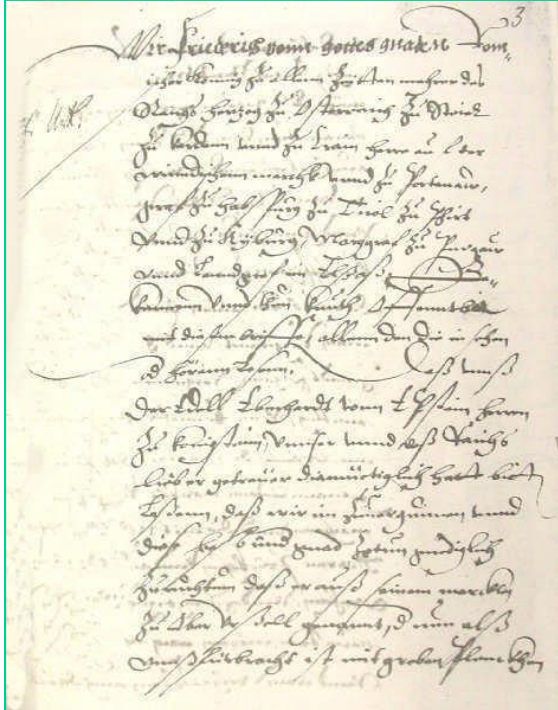 3
Wir Friederich vonn gottes gnaden Rom-
ischer konnig zu allenn Zyttenn mehrer des
Reichs herzog zu Osterreich zu Steier
zu Kerlenn unnd zu Crain herre auf der
windischenn marckh unnd zu Portenaw,
graf zu habspurg zu Tirol zu Phirt
unnd zu Kyburg, Marggraf zu Burgaw
unnd Lanndgraf im Elsaß Be-
kennen unnd thun kunth offennbar
mit diesem brieffe, allenn den die in sehen
od hörenn lesenn, Daß unnß
Der Edell Eberhardt vonn Epstein herrn
zu königstein, unnser unnd deß Reichs
lieber getreuer diemüetiglich hatt bitt
lassenn, daß wir im zuvergunnen unnd
diese gnad zethun gnediglich
zuruchtenn daß er auß seinem marckt
zu Ober Ursell genannt, d nun alß
unnß furbracht ist mit groben planckhen